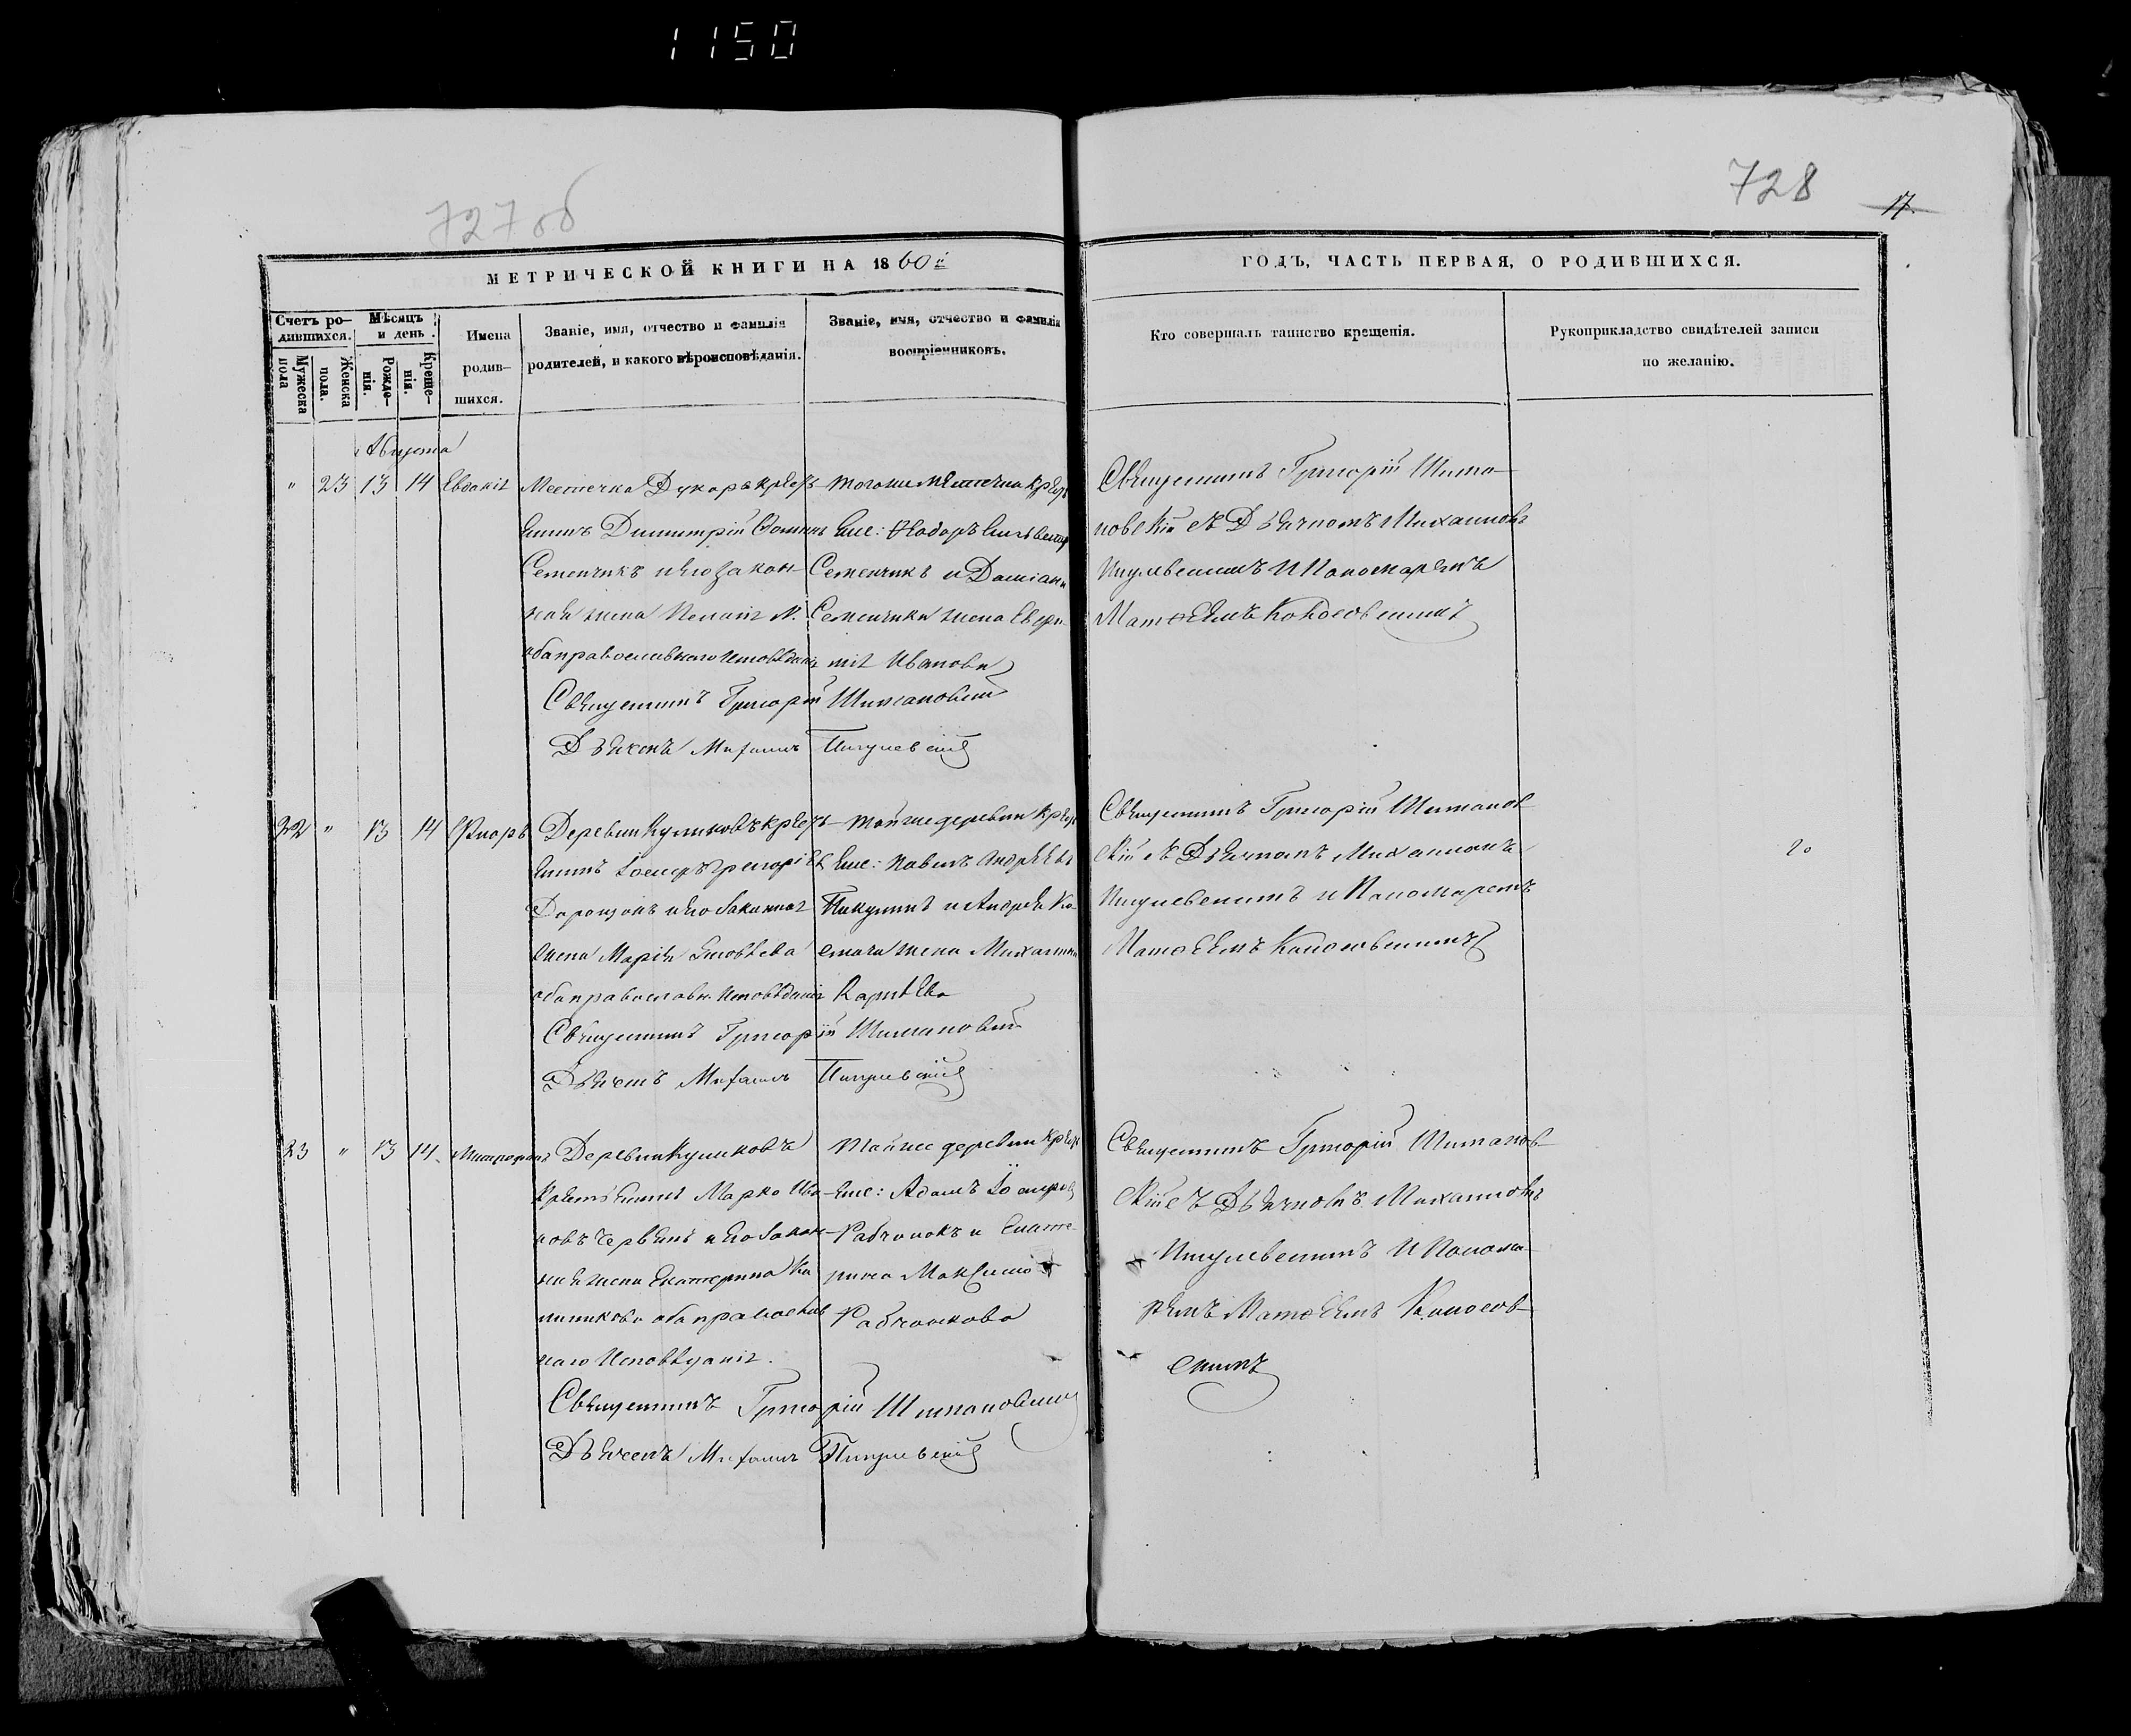 1150
727 об
728
17
МЕТРИЧЕСКОЙ КНИГИ НА 1860й
ГОДЪ, ЧАСТЬ ПЕРВАЯ, О РОДИВШИХСЯ.
Счетъ ро-
дившихся.
Мужеска
пола
Женска
пола.
Мѣсяцъ
и день
Рожде-
нія.
Креще-
нія.
Имена
родив-
шихся.
Званіе, имя, отчество и фамилія
родителей, и какого вѣроисповѣданія.
Званіе, имя, отчество и фамилія
воспріемниковъ.
Кто совершалъ таинство крещенія.
Рукоприкладство свидѣтелей записи
по желанію.
Августа
" 23 13 14 Евдокія
Местечка Дукоры крестъ-
янинъ Димитрій Фоминъ
Семенчикъ и его закон-
ная жена Пелагія
оба православнаго исповѣданія
Священникъ Григорій Шимановскій
Дьячекъ Михаилъ Пигулевскій
тогоже местечка крестъ-
яне: Ѳеодоръ
Семенчикъ и Даміана
Семенчика жена Евфи-
мія Иванова
Священникъ Григорій Шима-
новскій съ Дьячкомъ Михаиломъ
Пигулевскимъ и Пономаремъ
Матѳеемъ
22 " 13 14 Флоръ
Деревни Куликовъ крестъ-
янинъ Іосифъ Григоріевъ
и его законная
жена Марія Яковлева
оба православн. исповѣданія
Священникъ Григорій Шимановскій
Дьячекъ Михаилъ Пигулевскій
тойже деревни крестъ-
яне: Павелъ Андреевъ
и Андрея Ко-
жена
Священникъ Григорій Шиманов-
скій съ Дьячкомъ Михаиломъ
Пигулевскимъ и Пономаремъ
Матѳеемъ
20
23 " 13 14
Деревни Куликовъ
крестьянинъ Марко Ива-
новъ Червень и его закон-
ная жена Екатерина
оба православ-
наго исповѣданія.
Священникъ Григорій Шимановскій
Дьячекъ Михаилъ Пигулевскій
тойже деревни крестъ-
яне: Адамъ Іосифовъ
Рабчонокъ и Екате-
рина
Рабчонкова
Священникъ Григорій Шиманов-
скій съ Дьячкомъ Михаиломъ
Пигулевскимъ и Понома-
ремъ Матѳеемъ
скимъ